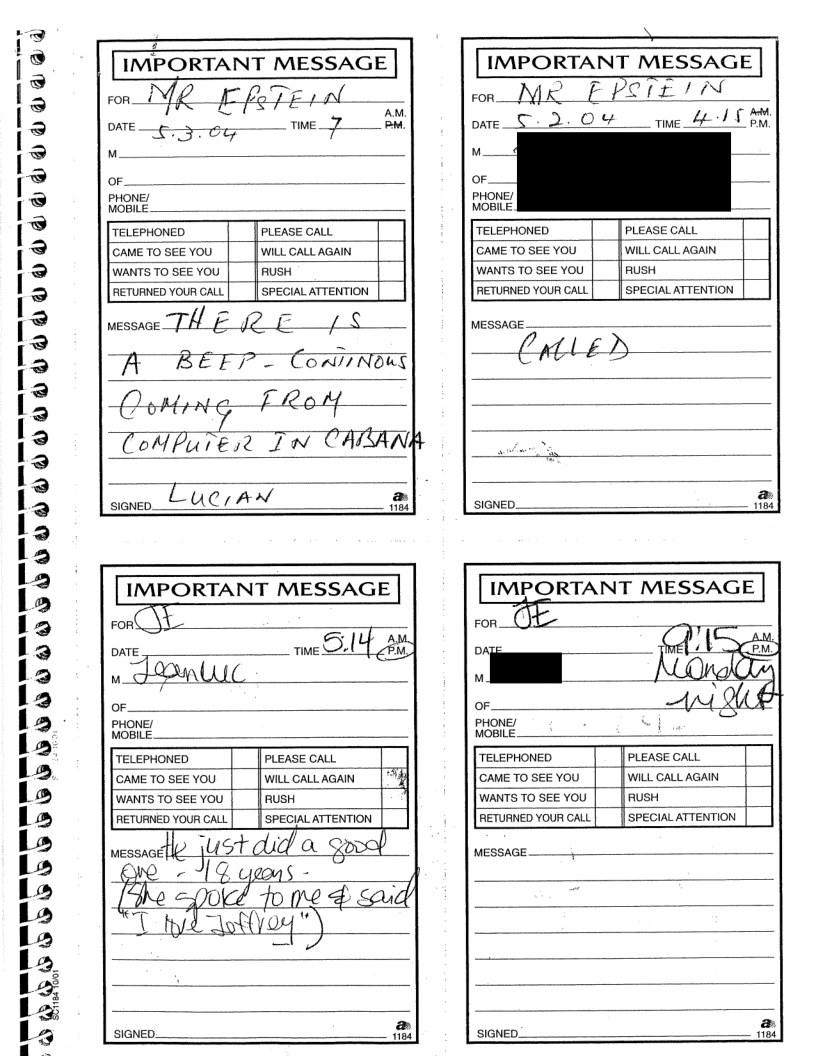 IMPORTANT MESSAGE
FOR MR EPSTEIN
A.M.
DATE 5.3.04 TIME 7 P.M.
M
OF
PHONE/
MOBILE
TELEPHONED PLEASE CALL
CAME TO SEE YOU WILL CALL AGAIN
WANTS TO SEE YOU RUSH
RETURNED YOUR CALL SPECIAL ATTENTION
MESSAGE THERE IS
A BEEP - CONTINOUS
COMING FROM
COMPUTER IN CABANA
SIGNED LUCIAN
1184
IMPORTANT MESSAGE
FOR MR EPSTEIN
DATE 5.2.04 TIME 4.15 A.M.
P.M.
M
OF
PHONE/
MOBILE
TELEPHONED PLEASE CALL
CAME TO SEE YOU WILL CALL AGAIN
WANTS TO SEE YOU RUSH
RETURNED YOUR CALL SPECIAL ATTENTION
MESSAGE
CALLED
SIGNED
1184
IMPORTANT MESSAGE
FOR JE
DATE TIME 5:14 A.M.
P.M.
M Jean Luc
OF
PHONE/
MOBILE
TELEPHONED PLEASE CALL
CAME TO SEE YOU WILL CALL AGAIN
WANTS TO SEE YOU RUSH
RETURNED YOUR CALL SPECIAL ATTENTION
MESSAGE He just did a good
one - 18 years -
(She spoke to me & said
"I love Jeffrey")
SIGNED
1184
IMPORTANT MESSAGE
FOR JE
DATE TIME 9:15 A.M.
P.M.
M Monday
OF night
PHONE/
MOBILE
TELEPHONED PLEASE CALL
CAME TO SEE YOU WILL CALL AGAIN
WANTS TO SEE YOU RUSH
RETURNED YOUR CALL SPECIAL ATTENTION
MESSAGE
SIGNED
1184
SC1184 10/01